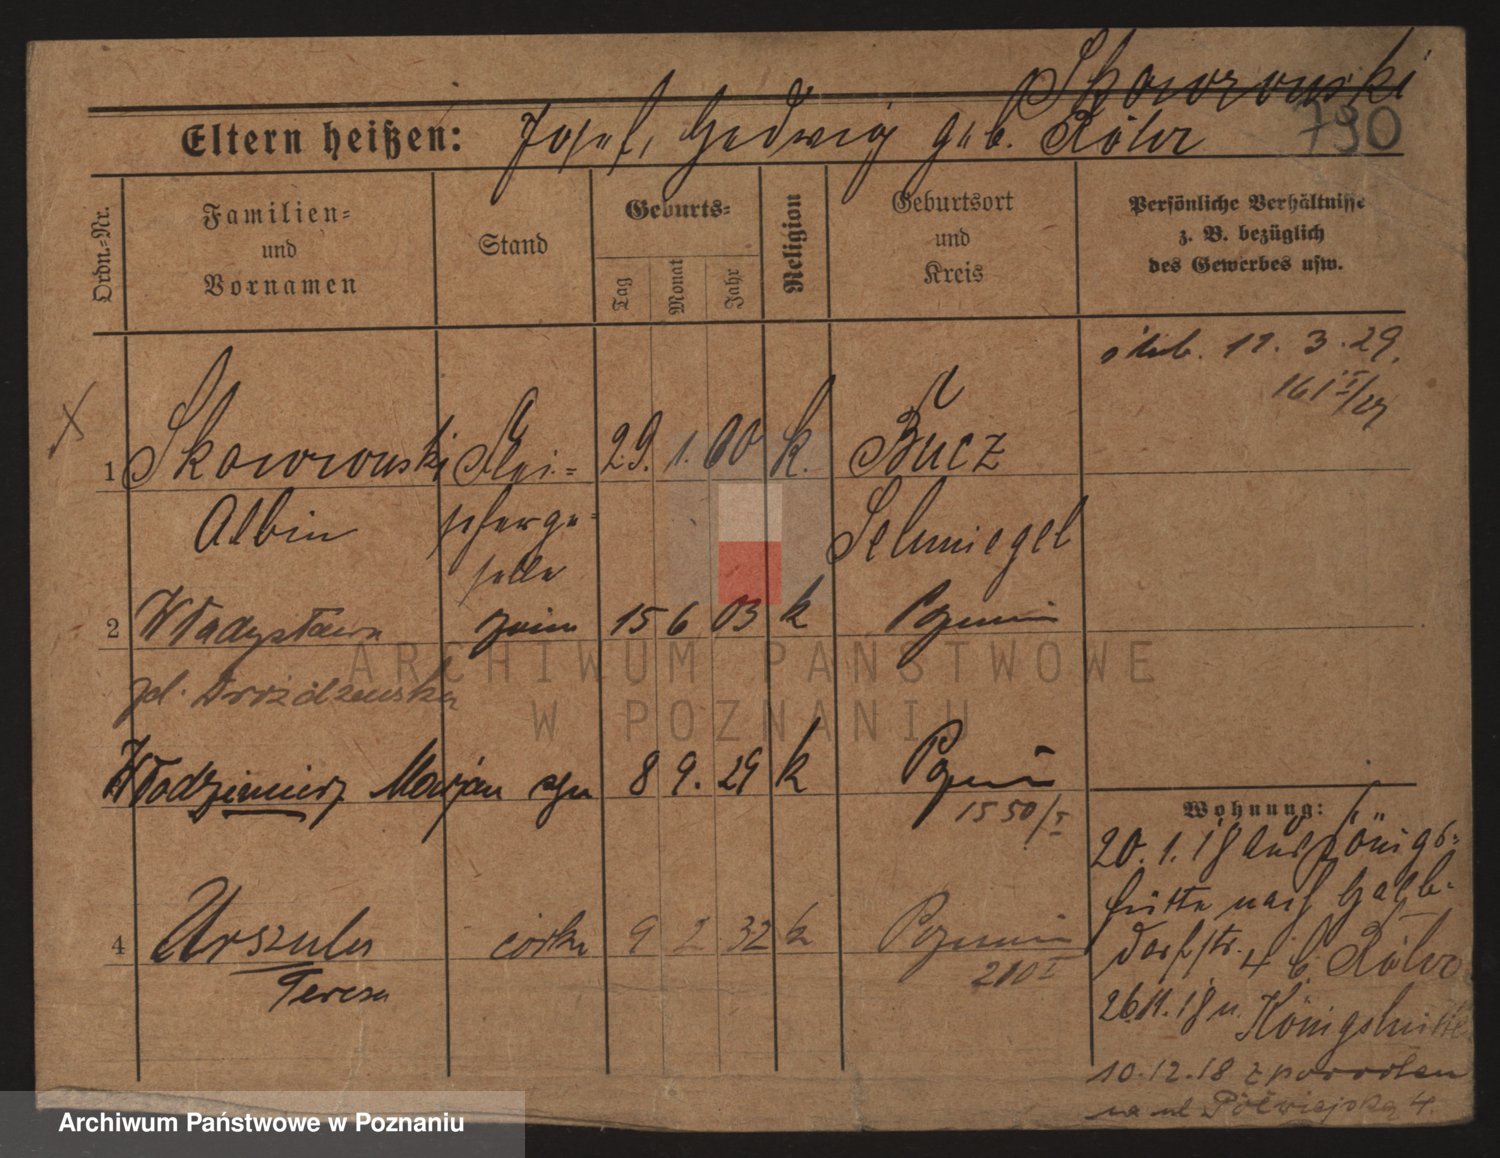 Skowronski
Eltern heißen: Josef, Hedwig geb. Röhr 790
Ordn.-Nr.
Familien- und Vornamen
Stand
Geburts-
Tag Monat Jahr
Religion
Geburtsort und Kreis
Persönliche Verhältnisse z. B. bezüglich des Gewerbes usw.
ślub. 11. 3. 29.
1 Skowronski Flei- 29. 1. 00 k. Bucz
Albin scherge- Schmiegel
selle
2 Władysława żona 15 6 03 k Poznań
zd. Drożdżewska
Włodzimierz Marjan syn 8 9. 29 k Poznań
1550/I
4 Urszula córka 9 2 32 k Poznań
Teresa 210 I
Wohnung:
20. 1. 18 aus Königs-
hütte nach Halb-
dorfstr. 4 b. Röhr
26.11.18 n. Königshütte
10.12.18 z powrotem
na ul Półwiejską 4.
ARCHIWUM PAŃSTWOWE
W POZNANIU
Archiwum Państwowe w Poznaniu